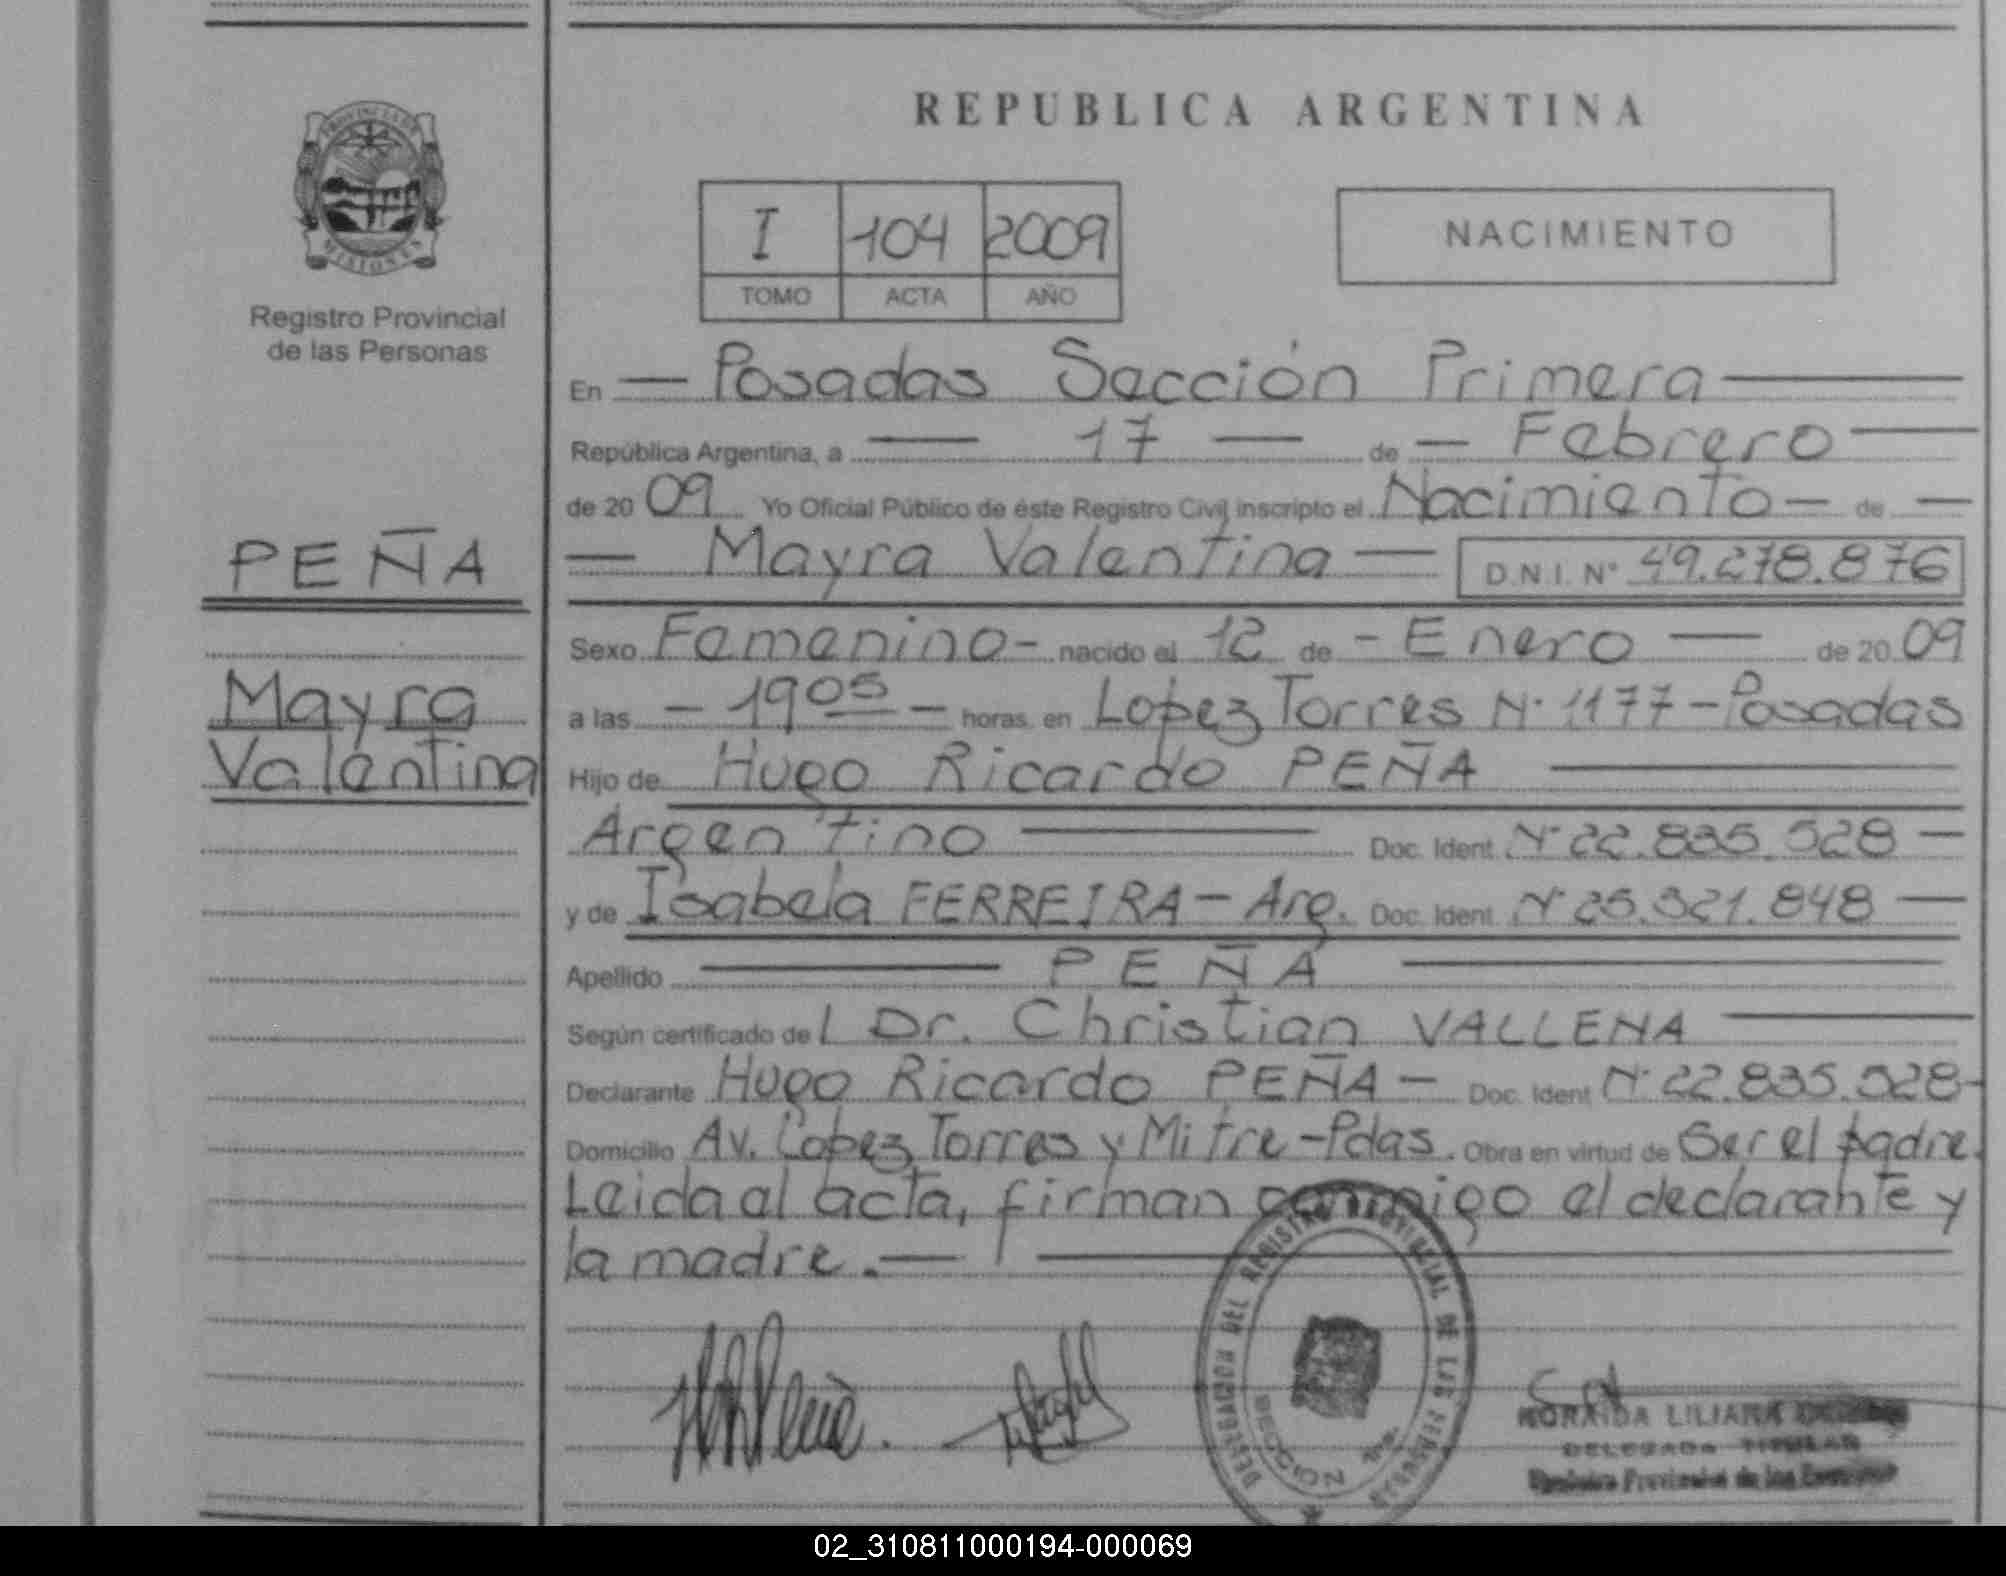 REPUBLICA ARGENTINA
PROVINCIA DE
MISIONES
Registro Provincial
de las Personas
I 104 2009
TOMO ACTA AÑO
NACIMIENTO
PEÑA
Mayra
Valentina
En — Posadas Sección Primera —
República Argentina, a — 17 — de — Febrero —
de 20 09 Yo Oficial Público de éste Registro Civil inscripto el Nacimiento — de —
— Mayra Valentina — D.N.I. Nº 49.278.876
Sexo Femenino - nacido el 12 de - Enero — de 20 09
a las - 19 05 - horas. en Lopez Torres Nº 1177 - Posadas
Hijo de Hugo Ricardo PEÑA —
Argentino — Doc. Ident. Nº 22.835.528 —
y de Isabela FERREIRA - Arg. Doc. Ident. Nº 25.321.848 —
Apellido — PEÑA —
Según certificado de l Dr. Christian VALLENA —
Declarante Hugo Ricardo PEÑA - Doc. Ident Nº 22.835.528 -
Domicilio Av. Lopez Torres y Mitre - Pdas. Obra en virtud de Ser el padre.
Leida al acta, firman conmigo el declarante y
la madre. —
DELEGACION DEL REGISTRO PROVINCIAL DE LAS PERSONAS
SECCION 1ra.
NORAIDA LILIANA
DELEGADA TITULAR
Provincial de las
02_310811000194-000069